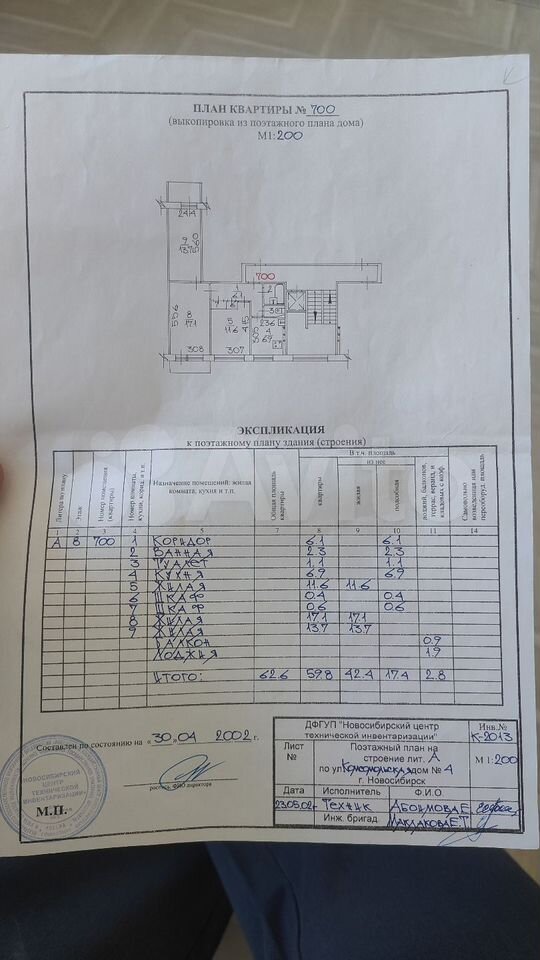 ПЛАН КВАРТИРЫ № 700
(выкопировка из поэтажного плана дома)
М1:200
2.44
9
13.7
5.60
700
8
17.1
5.56
5
11.6
4.15
2.36
4
6.9
3.00
3.08
3.07
ЭКСПЛИКАЦИЯ
к поэтажному плану здания (строения)
Литера по плану
Этаж
Номер помещения (квартиры)
Номер комнаты, кухни, корид. и т.п.
Назначение помещений: жилая комната, кухня и т.п.
Общая площадь квартиры
В т.ч. площадь
из нее
квартиры
жилая
подсобная
лоджий, балконов, террас, веранд, и кладовых с коэф.
Самовольно возведенная или переоборуд. площадь
1 2 3 4 5 7 8 9 10 11 14
А 8 700 1 Коридор 6.1 6.1
2 Ванная 2.3 2.3
3 Туалет 1.1 1.1
4 Кухня 6.9 6.9
5 Жилая 11.6 11.6
6 Шкаф 0.4 0.4
7 Шкаф 0.6 0.6
8 Жилая 17.1 17.1
9 Жилая 13.7 13.7
Балкон 0.9
Лоджия 1.9
Итого: 62.6 59.8 42.4 17.4 2.8
Составлен по состоянию на «30».04 2002 г.
роспись, ФИО директора
М.П.
НОВОСИБИРСКИЙ
ЦЕНТР
ТЕХНИЧЕСКОЙ
ИНВЕНТАРИЗАЦИИ
ДФГУП "Новосибирский центр
технической инвентаризации"
Инв.№
К-2013
Лист
№
Поэтажный план на
строение лит. А
по ул. Комсомольская дом № 4
г. Новосибирск
М 1:200
Дата Исполнитель Ф.И.О.
23.05.02г Техник Абоимова Е.
Инж. бригад. Маклакова Е.Т